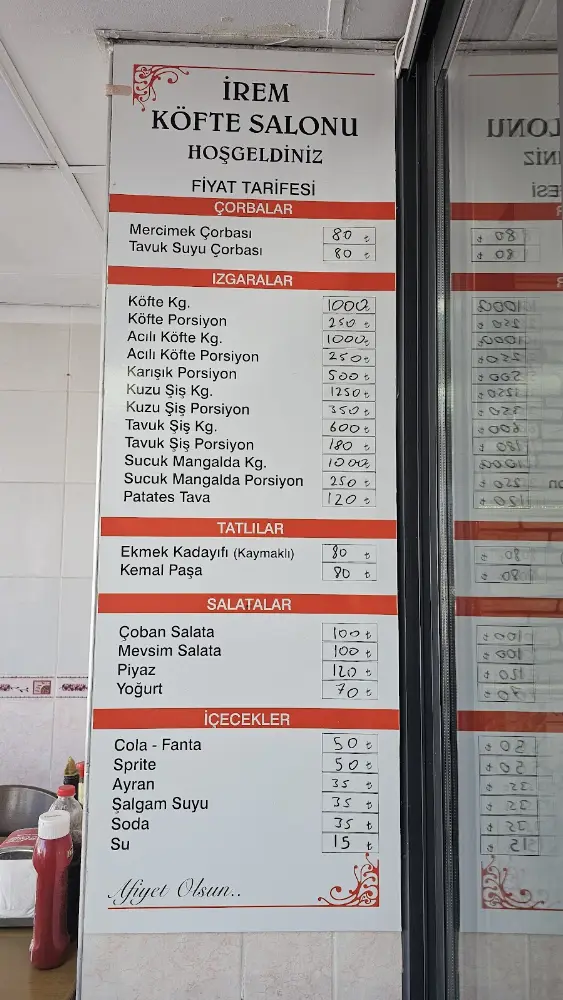 İREM
KÖFTE SALONU
HOŞGELDİNİZ
FİYAT TARİFESİ
ÇORBALAR
Mercimek Çorbası 80 ₺
Tavuk Suyu Çorbası 80 ₺
IZGARALAR
Köfte Kg. 1000₺
Köfte Porsiyon 250 ₺
Acılı Köfte Kg. 1000₺
Acılı Köfte Porsiyon 250 ₺
Karışık Porsiyon 500 ₺
Kuzu Şiş Kg. 1250 ₺
Kuzu Şiş Porsiyon 350 ₺
Tavuk Şiş Kg. 600 ₺
Tavuk Şiş Porsiyon 180 ₺
Sucuk Mangalda Kg. 1000₺
Sucuk Mangalda Porsiyon 250 ₺
Patates Tava 120 ₺
TATLILAR
Ekmek Kadayıfı (Kaymaklı) 80 ₺
Kemal Paşa 80 ₺
SALATALAR
Çoban Salata 100 ₺
Mevsim Salata 100 ₺
Piyaz 120 ₺
Yoğurt 70 ₺
İÇECEKLER
Cola - Fanta 50 ₺
Sprite 50 ₺
Ayran 35 ₺
Şalgam Suyu 35 ₺
Soda 35 ₺
Su 15 ₺
Afiyet Olsun..